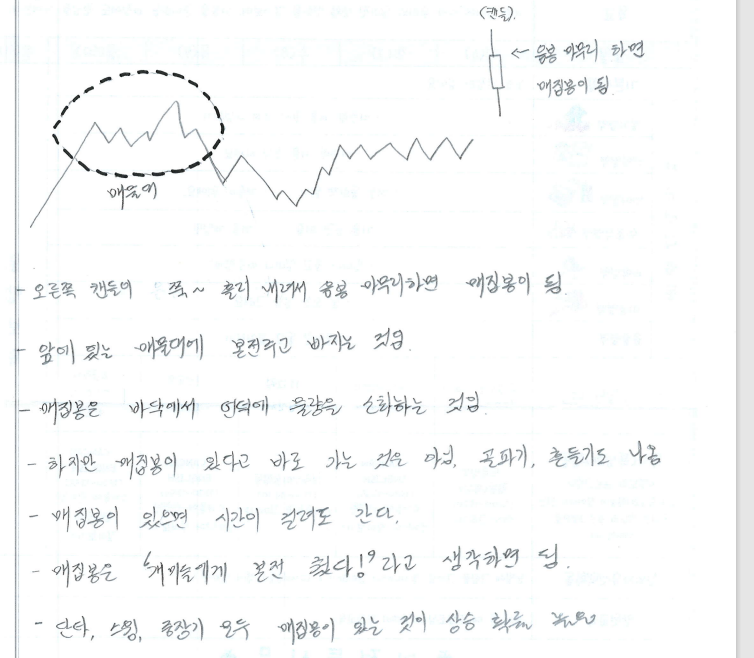 (캔들).
← 음봉 마무리 하면
매집봉이 됨.
매물대
- 오른쪽 캔들이 쭉~ 흘러 내려서 음봉 마무리하면 매집봉이 됨.
- 앞에 있는 매물대에 본전주고 빠지는 것임.
- 매집봉은 바닥에서 언덕에 물량을 소화하는 것임.
- 하지만 매집봉이 있다고 바로 가는 것은 아님, 골파기, 흔들기도 나옴
- 매집봉이 있으면 시간이 걸려도 간다.
- 매집봉은 '개미들에게 본전 줬다!' 라고 생각하면 됨.
- 단타, 스윙, 중장기 모두 매집봉이 있는 것이 상승 확률 높음